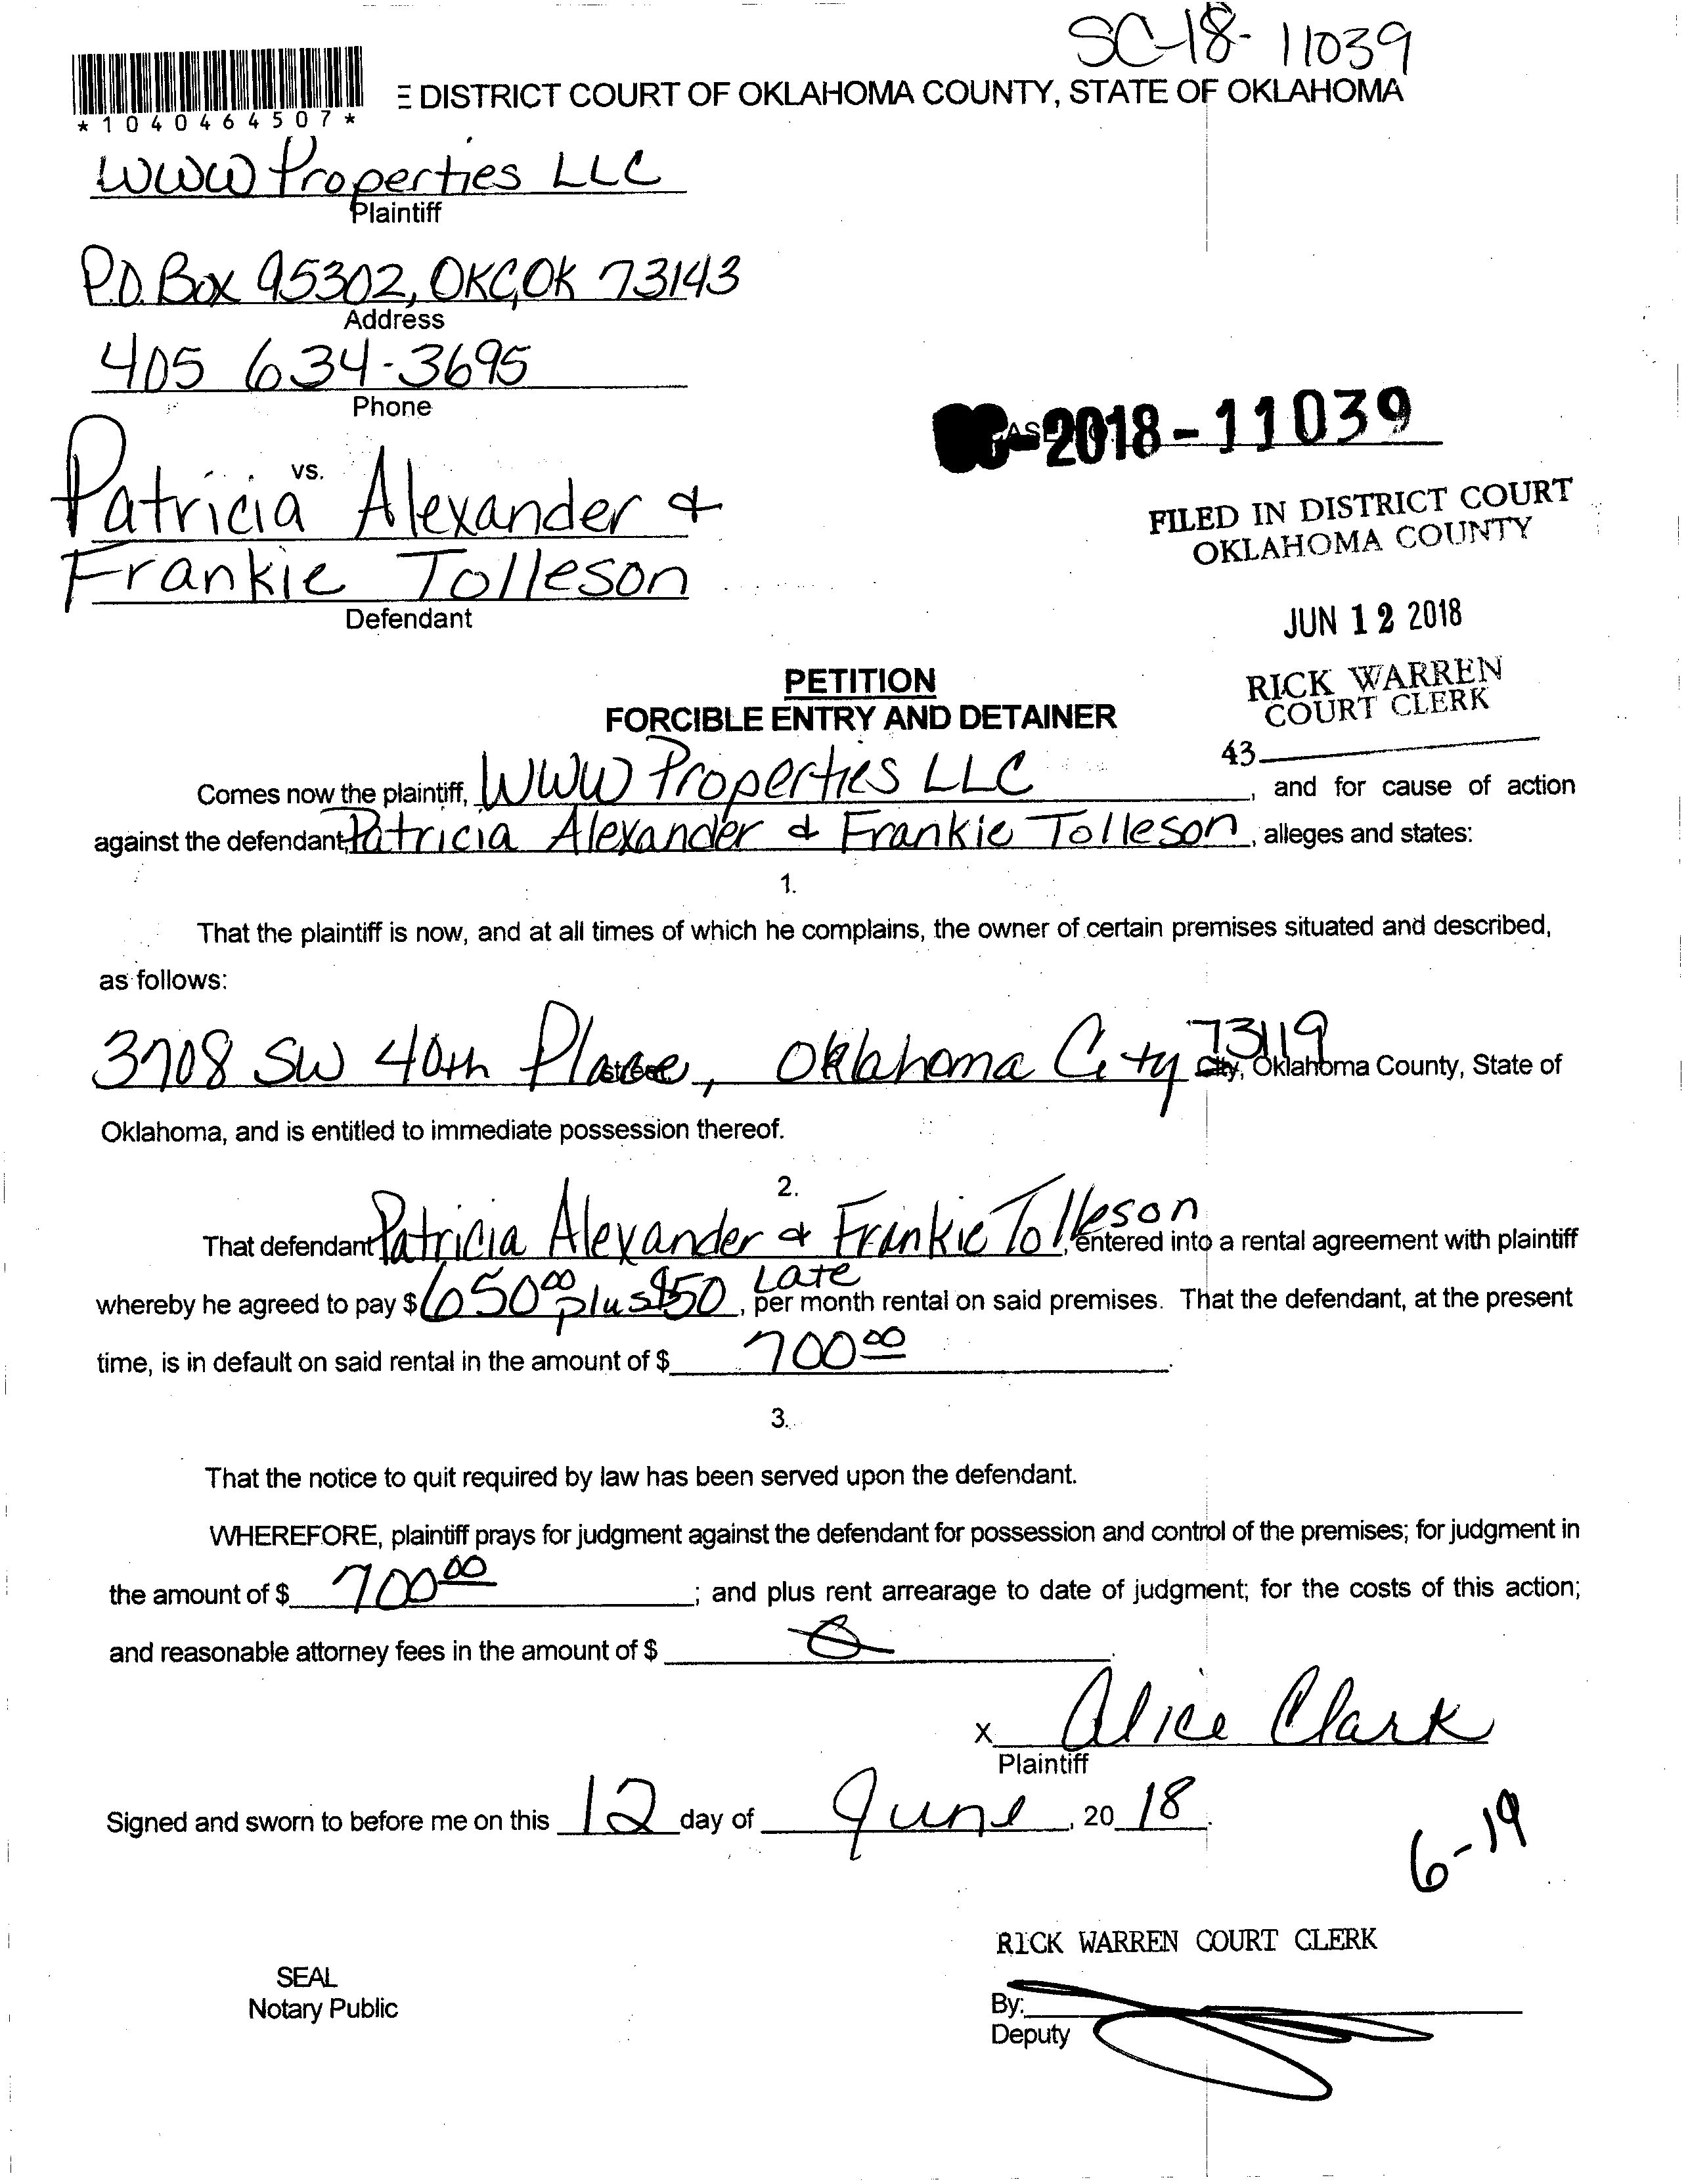 SC-18-11039
DISTRICT COURT OF OKLAHOMA COUNTY, STATE OF OKLAHOMA
*1040464507*
WWW Properties LLC
Plaintiff
P.O. Box 95302, OKC, OK 73143
Address
405 634-3695
Phone
-2018-11039
vs.
Patricia Alexander &
Frankie Tolleson
Defendant
FILED IN DISTRICT COURT
OKLAHOMA COUNTY
JUN 12 2018
RICK WARREN
COURT CLERK
43
PETITION
FORCIBLE ENTRY AND DETAINER
Comes now the plaintiff, WWW Properties LLC, and for cause of action
against the defendant, Patricia Alexander & Frankie Tolleson, alleges and states:
1.
That the plaintiff is now, and at all times of which he complains, the owner of certain premises situated and described,
as follows:
3708 SW 40th Place, Oklahoma City 73119 City, Oklahoma County, State of
Oklahoma, and is entitled to immediate possession thereof.
2.
That defendant Patricia Alexander & Frankie Tolleson, entered into a rental agreement with plaintiff
whereby he agreed to pay $650.00 plus $50 Late, per month rental on said premises. That the defendant, at the present
time, is in default on said rental in the amount of $ 700.00.
3.
That the notice to quit required by law has been served upon the defendant.
WHEREFORE, plaintiff prays for judgment against the defendant for possession and control of the premises; for judgment in
the amount of $ 700.00; and plus rent arrearage to date of judgment; for the costs of this action;
and reasonable attorney fees in the amount of $ 0.
X Alice Clark
Plaintiff
Signed and sworn to before me on this 12 day of June, 2018.
6-19
RICK WARREN COURT CLERK
SEAL
Notary Public
By:
Deputy